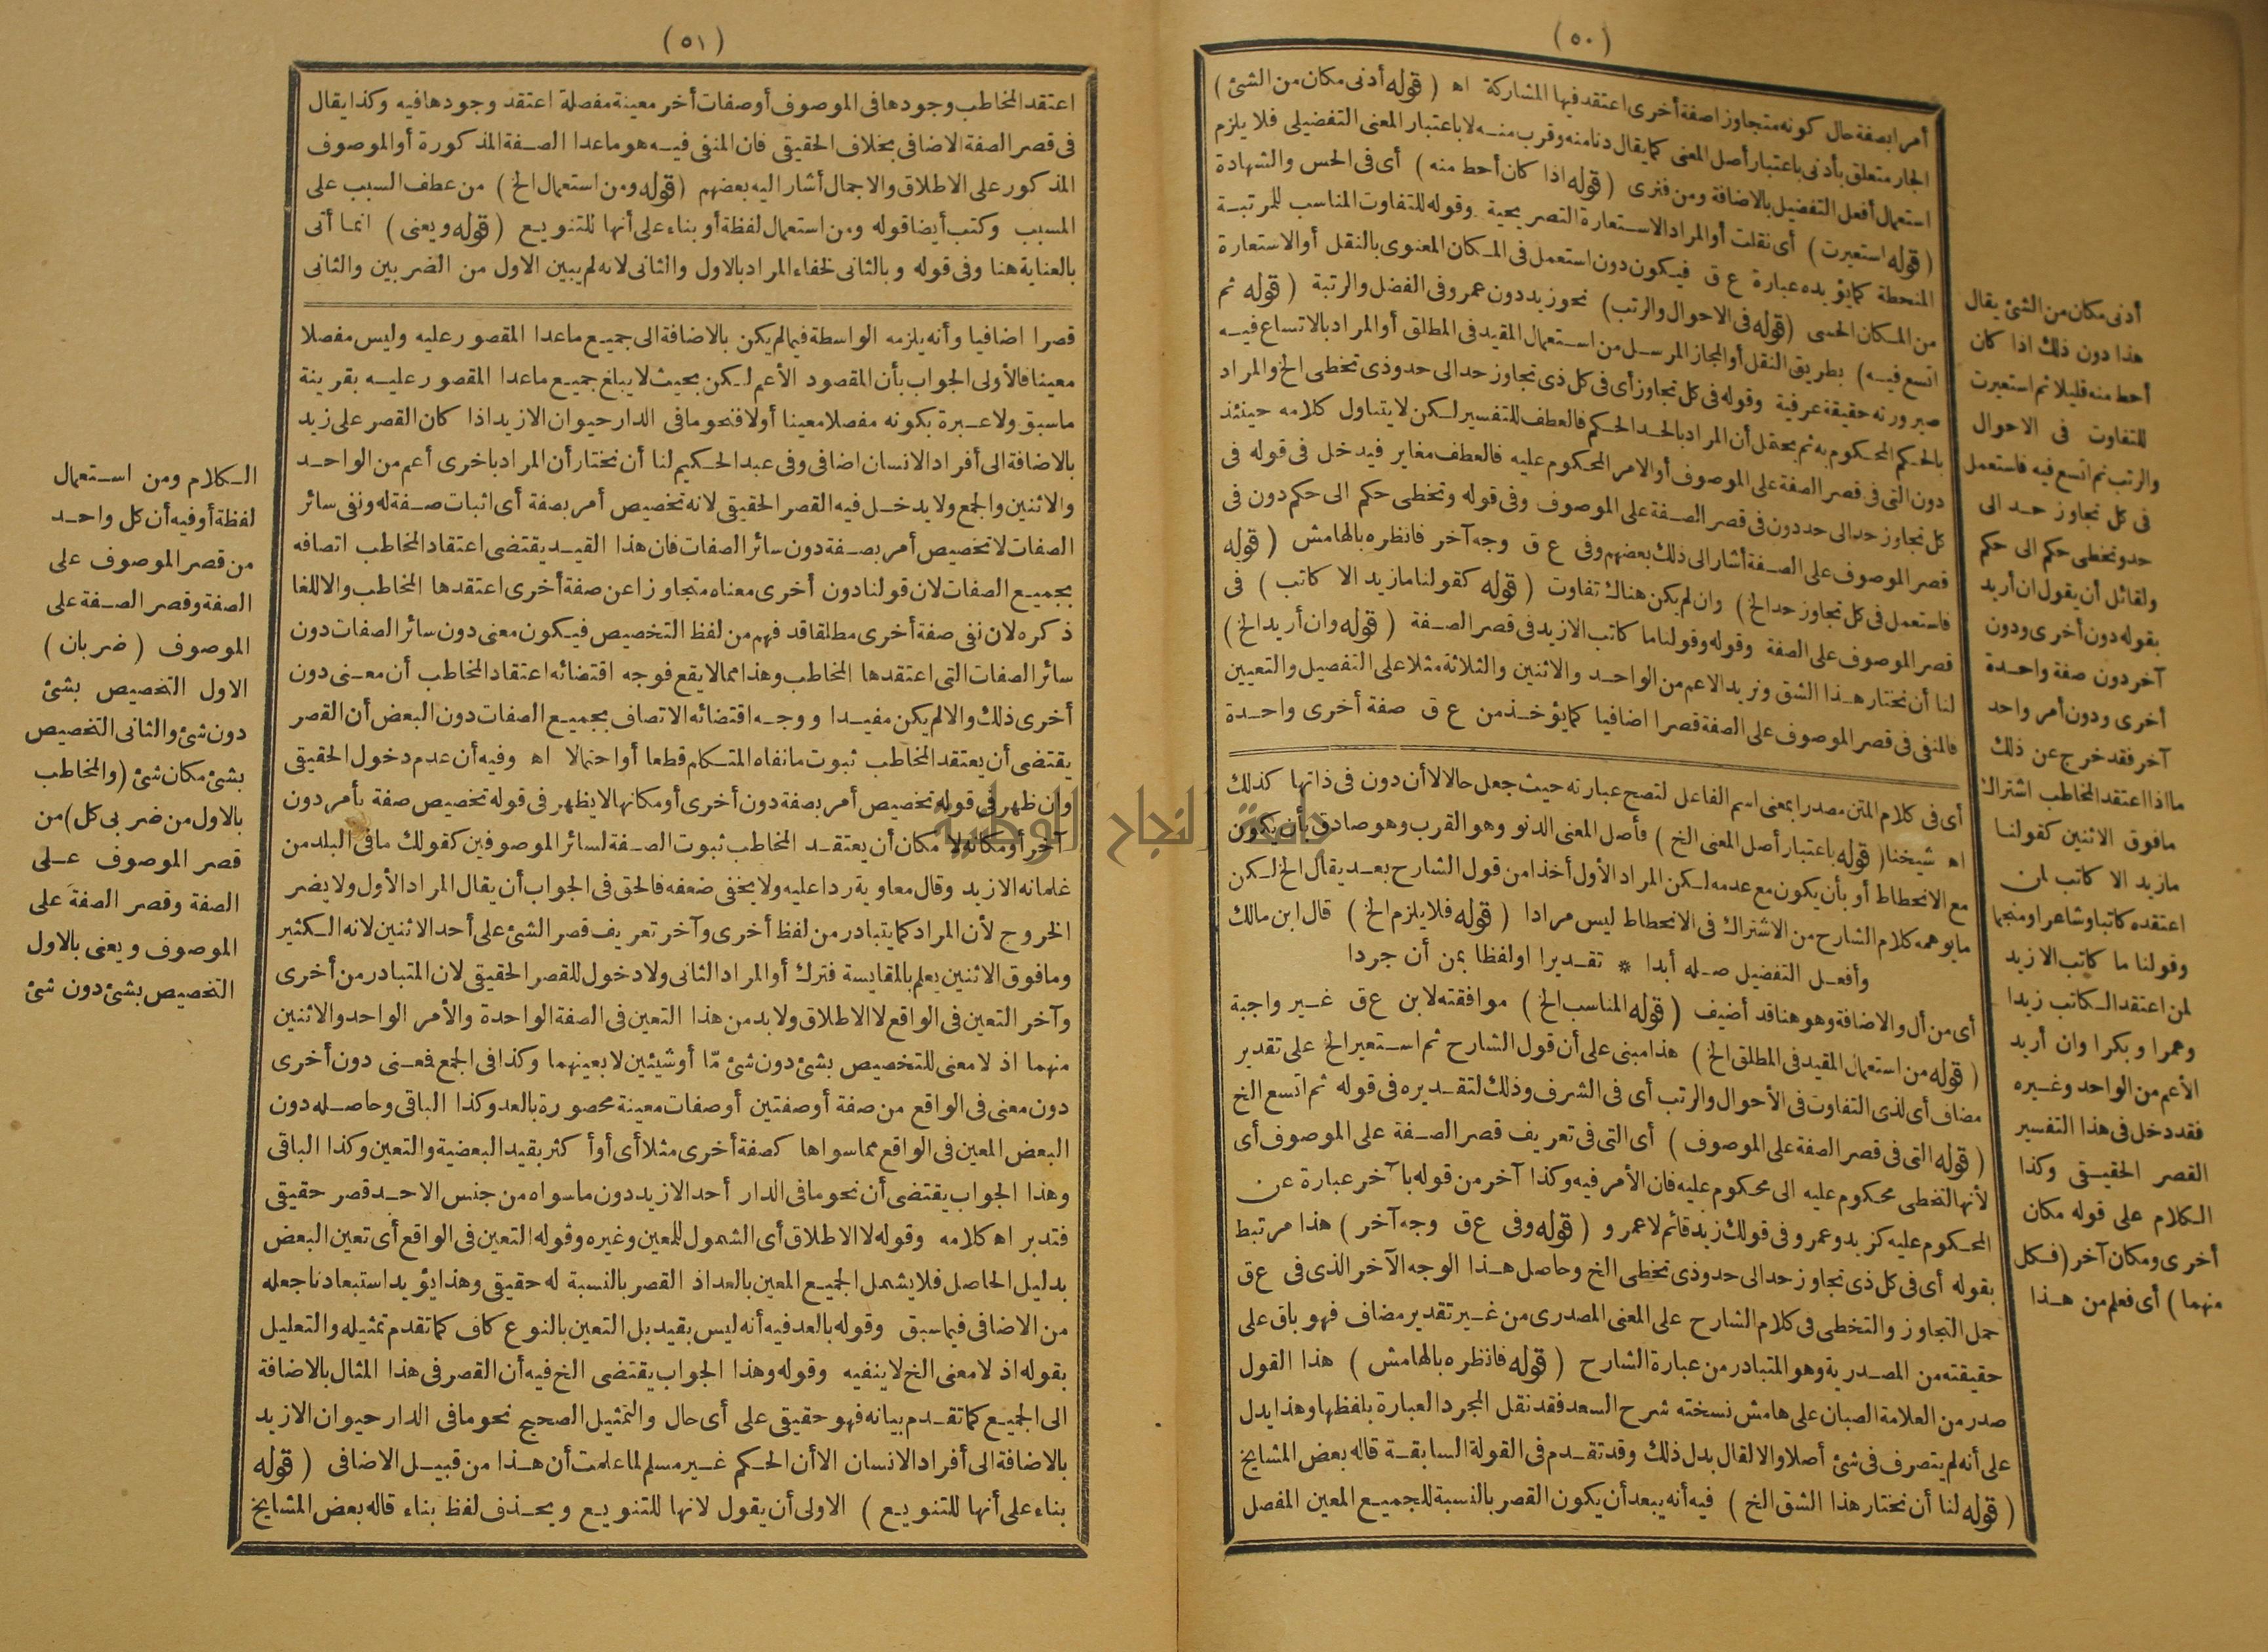 (٥٠)
أمرا بصفة حال كونه متجاوزا صفة أخرى اعتقد فيها المشاركة اه (قوله أدنى مكان من الشئ)
الجار متعلق بأدنى باعتبار أصل المعنى كما يقال دنا منه وقرب منه لا باعتبار المعنى التفضيلى فلا يلزم
استعمال أفعل التفضيل بالاضافة ومن فنرى (قوله اذا كان أحط منه) أى فى الحس والشهادة
(قوله استعيرت) أى نقلت أو المراد الاستعارة التصريحية وقوله للتفاوت المناسب للمرتبة
المنحطة كما يؤيده عبارة ع ق فيكون دون استعمل فى المكان المعنوى بالنقل أو الاستعارة
من المكان الحسى (قوله فى الاحوال والرتب) نحو زيد دون عمرو فى الفضل والرتبة (قوله ثم
اتسع فيه) بطريق النقل أو المجاز المرسل من استعمال المقيد فى المطلق أو المراد بالاتساع فيه
صيرورته حقيقة عرفية وقوله فى كل تجاوز أى فى كل ذى تجاوز حد الى حد وذى تخطى الخ والمراد
بالحكم المحكوم به ثم يحتمل أن المراد بالحد الحكم فالعطف للتفسير لكن لا يتناول كلامه حينئذ
دون التى فى قصر الصفة على الموصوف أو الامر المحكوم عليه فالعطف مغاير فيدخل فى قوله فى
كل تجاوز حد الى حد دون فى قصر الصفة على الموصوف وفى قوله وتخطى حكم الى حكم دون فى
قصر الموصوف على الصفة أشار الى ذلك بعضهم وفى ع ق وجه آخر فانظره بالهامش (قوله
فاستعمل فى كل تجاوز حد الخ) وان لم يكن هناك تفاوت (قوله كقولنا ما زيد الا كاتب) فى
قصر الموصوف على الصفة وقوله وقولنا ما كاتب الا زيد فى قصر الصفة (قوله وان أريد الخ)
لنا أن نختار هذا الشق ونريد الاعم من الواحد والاثنين والثلاثة مثلا على التفصيل والتعيين
فالمنفى فى قصر الموصوف على الصفة قصرا اضافيا كما يؤخذ من ع ق صفة أخرى واحدة
أى فى كلام المتن مصدرا بمعنى اسم الفاعل لتصح عبارته حيث جعل حالا لا أن دون فى ذاتها كذلك
اه شيخنا (قوله باعتبار أصل المعنى الخ) فأصل المعنى الدنو وهو القرب وهو صادق بأن يكون
مع الانحطاط أو بأن يكون مع عدمه لكن المراد الأول أخذا من قول الشارح بعد يقال الخ لكن
ما يوهمه كلام الشارح من الاشتراك فى الانحطاط ليس مرادا (قوله فلا يلزم الخ) قال ابن مالك
وأفعل التفضيل صله أبدا * تقديرا او لفظا بمن أن جردا
أى من أل والاضافة وهو هنا قد أضيف (قوله المناسب الخ) موافقته لابن ع ق غير واجبة
(قوله من استعمال المقيد فى المطلق الخ) هذا مبنى على أن قول الشارح ثم استعير الخ على تقدير
مضاف أى لذى التفاوت فى الأحوال والرتب أى فى الشرف وذلك لتقديره فى قوله ثم اتسع الخ
(قوله التى فى قصر الصفة على الموصوف) أى التى فى تعريف قصر الصفة على الموصوف أى
لأنها لتخطى محكوم عليه الى محكوم عليه فان الأمر فيه وكذا آخر من قوله بآخر عبارة عن
المحكوم عليه كزيد وعمرو فى قولك زيد قائم لا عمرو (قوله وفى ع ق وجه آخر) هذا مرتبط
بقوله أى فى كل ذى تجاوز حد الى حد وذى تخطى الخ وحاصل هذا الوجه الآخر الذى فى ع ق
حمل التجاوز والتخطى فى كلام الشارح على المعنى المصدرى من غير تقدير مضاف فهو باق على
حقيقته من المصدرية وهو المتبادر من عبارة الشارح (قوله فانظره بالهامش) هذا القول
صدر من العلامة الصبان على هامش نسخته شرح السعد فقد نقل المجرد العبارة بلفظها وهذا يدل
على أنه لم يتصرف فى شئ أصلا والا لقال بدل ذلك وقد تقدم فى القولة السابقة قاله بعض المشايخ
(قوله لنا أن نختار هذا الشق الخ) فيه أنه يبعد أن يكون القصر بالنسبة للجميع المعين المفصل
أدنى مكان من الشئ يقال
هذا دون ذلك اذا كان
أحط منه قليلا ثم استعيرت
للتفاوت فى الاحوال
والرتب ثم اتسع فيه فاستعمل
فى كل تجاوز حد الى
حد وتخطى حكم الى حكم
ولقائل أن يقول ان أريد
بقوله دون أخرى ودون
آخر دون صفة واحدة
أخرى ودون أمر واحد
آخر فقد خرج عن ذلك
ما اذا اعتقد المخاطب اشتراك
ما فوق الاثنين كقولنا
ما زيد الا كاتب لمن
اعتقده كاتبا وشاعرا ومنجما
وقولنا ما كاتب الا زيد
لمن اعتقد الكاتب زيدا
وعمرا وبكرا وان أريد
الأعم من الواحد وغيره
فقد دخل فى هذا التفسير
القصر الحقيقى وكذا
الكلام على قوله مكان
أخرى ومكان آخر (فكل
منهما) أى فعلم من هذا
(٥١)
اعتقد المخاطب وجودها فى الموصوف أو صفات أخر معينة مفصلة اعتقد وجودها فيه وكذا يقال
فى قصر الصفة الاضافى بخلاف الحقيقى فان المنفى فيه هو ما عدا الصفة المذكورة أو الموصوف
المذكور على الاطلاق والاجمال أشار اليه بعضهم (قوله ومن استعمال الخ) من عطف السبب على
المسبب وكتب أيضا قوله ومن استعمال لفظة أو بناء على أنها للتنويع (قوله ويعنى) انما أتى
بالعناية هنا وفى قوله وبالثانى لخفاء المراد بالاول والثانى لانه لم يبين الاول من الضربين والثانى
قصرا اضافيا وأنه يلزمه الواسطة فيما لم يكن بالاضافة الى جميع ما عدا المقصور عليه وليس مفصلا
معينا فالأولى الجواب بأن المقصود الأعم لكن بحيث لا يبلغ جميع ما عدا المقصور عليه بقرينة
ما سبق ولا عبرة بكونه مفصلا معينا أولا فنحو ما فى الدار حيوان الا زيد اذا كان القصر على زيد
بالاضافة الى أفراد الانسان اضافى وفى عبد الحكيم لنا أن نختار أن المراد باخرى أعم من الواحد
والاثنين والجمع ولا يدخل فيه القصر الحقيقى لانه تخصيص أمر بصفة أى اثبات صفة له ونفى سائر
الصفات لا تخصيص أمر بصفة دون سائر الصفات فان هذا القيد يقتضى اعتقاد المخاطب اتصافه
بجميع الصفات لان قولنا دون أخرى معناه متجاوزا عن صفة أخرى اعتقدها المخاطب والا للغا
ذكره لان نفى صفة أخرى مطلقا قد فهم من لفظ التخصيص فيكون معنى دون سائر الصفات دون
سائر الصفات التى اعتقدها المخاطب وهذا مما لا يقع فوجه اقتضائه اعتقاد المخاطب أن معنى دون
أخرى ذلك والا لم يكن مفيدا ووجه اقتضائه الاتصاف بجميع الصفات دون البعض أن القصر
يقتضى أن يعتقد المخاطب ثبوت ما نفاه المتكلم قطعا أو احتمالا اه وفيه أن عدم دخول الحقيقى
وان ظهر فى قوله تخصيص أمر بصفة دون أخرى أو مكانها لا يظهر فى قوله تخصيص صفة بأمر دون
آخر أو مكانه لامكان أن يعتقد المخاطب ثبوت الصفة لسائر الموصوفين كقولك ما فى البلد من
غلمانه الا زيد وقال معاوية ردا عليه ولا يخفى ضعفه فالحق فى الجواب أن يقال المراد الأول ولا يضر
الخروج لأن المراد كما يتبادر من لفظ أخرى وآخر تعريف قصر الشئ على أحد الاثنين لانه الكثير
وما فوق الاثنين يعلم بالمقايسة فترك أو المراد الثانى ولا دخول للقصر الحقيقى لان المتبادر من أخرى
وآخر التعين فى الواقع لا الاطلاق ولا بد من هذا التعين فى الصفة الواحدة والأمر الواحد والاثنين
منهما اذ لا معنى للتخصيص بشئ دون شئ مّا أو شيئين لا بعينهما وكذا فى الجمع فمعنى دون أخرى
دون معنى فى الواقع من صفة أو صفتين أو صفات معينة محصورة بالعد وكذا الباقى وحاصله دون
البعض المعين فى الواقع مما سواها كصفة أخرى مثلا أى أو أكثر بقيد البعضية والتعين وكذا الباقى
وهذا الجواب يقتضى أن نحو ما فى الدار أحد الا زيد دون ما سواه من جنس الاحد قصر حقيقى
فتدبر اه كلامه وقوله لا الاطلاق أى الشمول للمعين وغيره وقوله التعين فى الواقع أى تعين البعض
بدليل الحاصل فلا يشمل الجميع المعين بالعد اذ القصر بالنسبة له حقيقى وهذا يؤيد استبعادنا جعله
من الاضافى فيما سبق وقوله بالعد فيه أنه ليس بقيد بل التعين بالنوع كاف كما تقدم تمثيله والتعليل
بقوله اذ لا معنى الخ لا ينفيه وقوله وهذا الجواب يقتضى الخ فيه أن القصر فى هذا المثال بالاضافة
الى الجميع كما تقدم بيانه فهو حقيقى على أى حال والتمثيل الصحيح نحو ما فى الدار حيوان الا زيد
بالاضافة الى أفراد الانسان الا أن الحكم غير مسلم لما علمت أن هذا من قبيل الاضافى (قوله
بناء على أنها للتنويع) الاولى أن يقول لانها للتنويع ويحذف لفظ بناء قاله بعض المشايخ
الكلام ومن استعمال
لفظة أو فيه أن كل واحد
من قصر الموصوف على
الصفة وقصر الصفة على
الموصوف (ضربان)
الاول التخصيص بشئ
دون شئ والثانى التخصيص
بشئ مكان شئ (والمخاطب
بالاول من ضربى كل) من
قصر الموصوف على
الصفة وقصر الصفة على
الموصوف ويعنى بالاول
التخصيص بشئ دون شئ
جامعة النجاح الوطنية